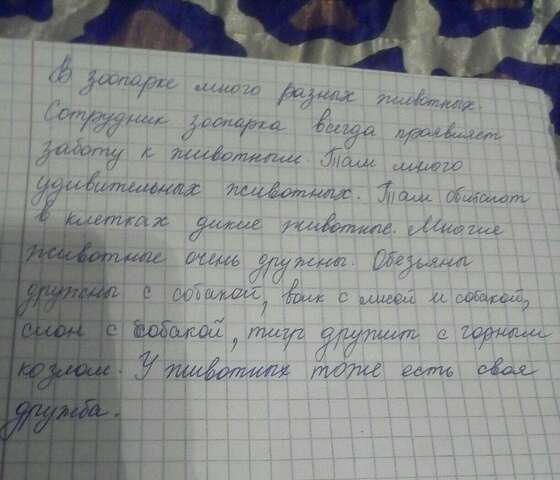 В зоопарке много разных животных.
Сотрудник зоопарка всегда проявляет
заботу к животным. Там много
удивительных животных. Там обитают
в клетках дикие животные. Многие
животные очень дружны. Обезьяны
дружны с собакой, волк с лисой и собакой,
слон с собакой, тигр дружит с горным
козлом. У животных тоже есть своя
дружба.